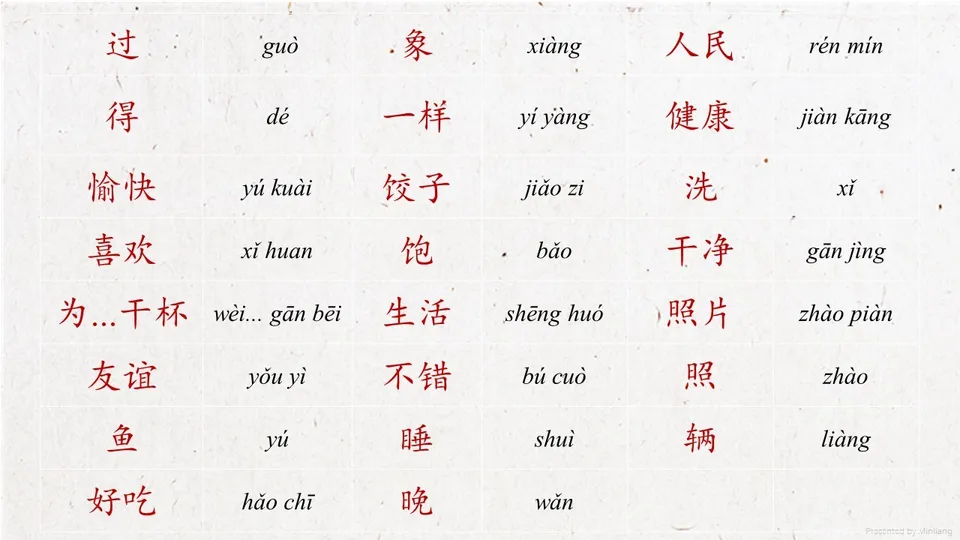 过 guò 象 xiàng 人民 rén mín
得 dé 一样 yí yàng 健康 jiàn kāng
愉快 yú kuài 饺子 jiǎo zi 洗 xǐ
喜欢 xǐ huan 饱 bǎo 干净 gān jìng
为...干杯 wèi... gān bēi 生活 shēng huó 照片 zhào piàn
友谊 yǒu yì 不错 bú cuò 照 zhào
鱼 yú 睡 shuì 辆 liàng
好吃 hǎo chī 晚 wǎn
Presented by